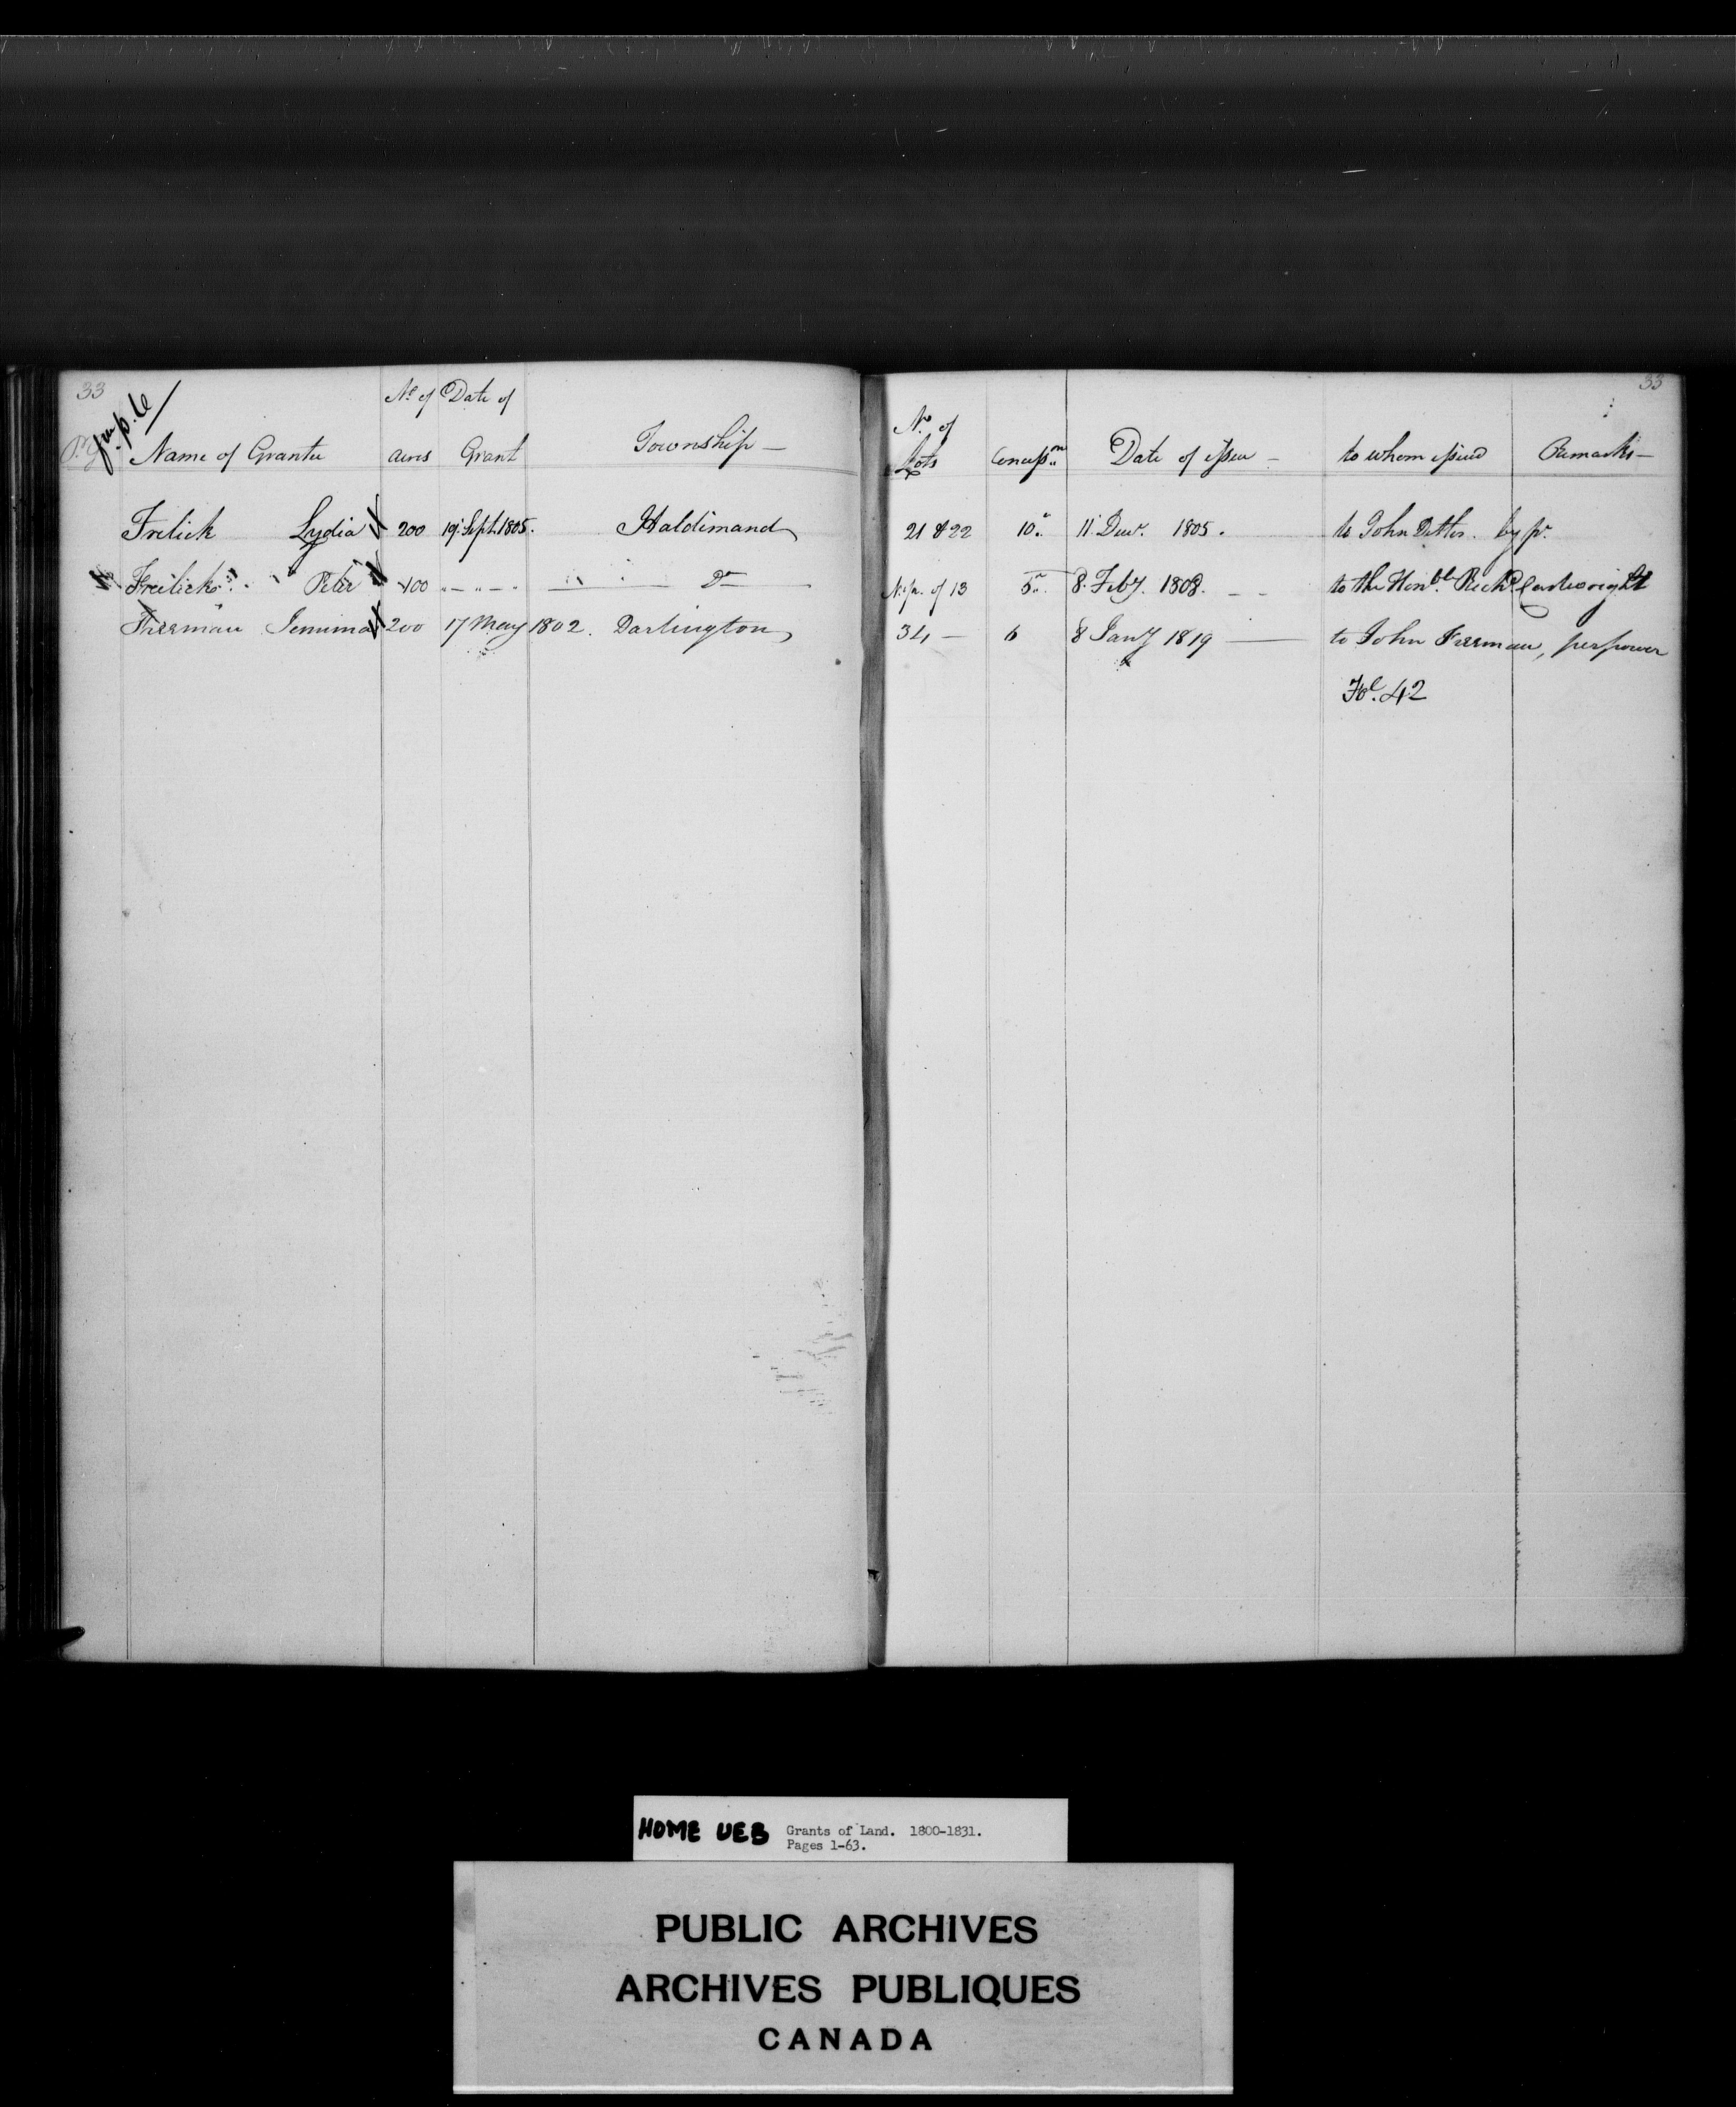 33 33
Name of Grantee No. of acres Date of Grant Township — No. of Lots Concessn. Date of issue — to whom issued Remarks —
Frelick Lydia 200 19. Sept. 1805. Haldimand 21 & 22 10. 11. Decr. 1805. to John Ditlor. by pr.
Freelick Peter 400 " — " — " Do — N. pr. of 13 5. 8. Feby. 1808. — — to the Honble. Richd. Cartwright
Freeman Jemima 200 17 May 1802. Darlington 34 — 6 8 Jany 1819 — to John Freeman, per power
Fol. 42
HOME UEB Grants of Land. 1800-1831.
Pages 1-63.
PUBLIC ARCHIVES
ARCHIVES PUBLIQUES
CANADA